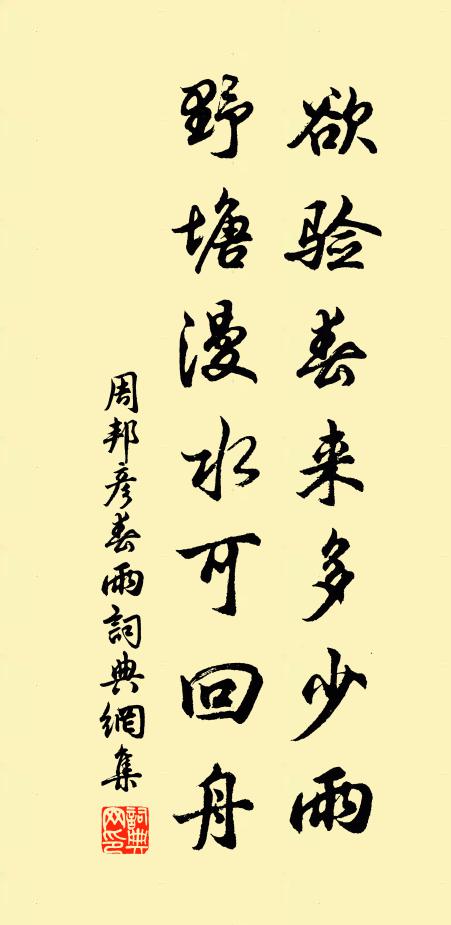 欲验春来多少雨
野塘漫水可回舟
周邦彦春雨詞典網集
詞典
网印